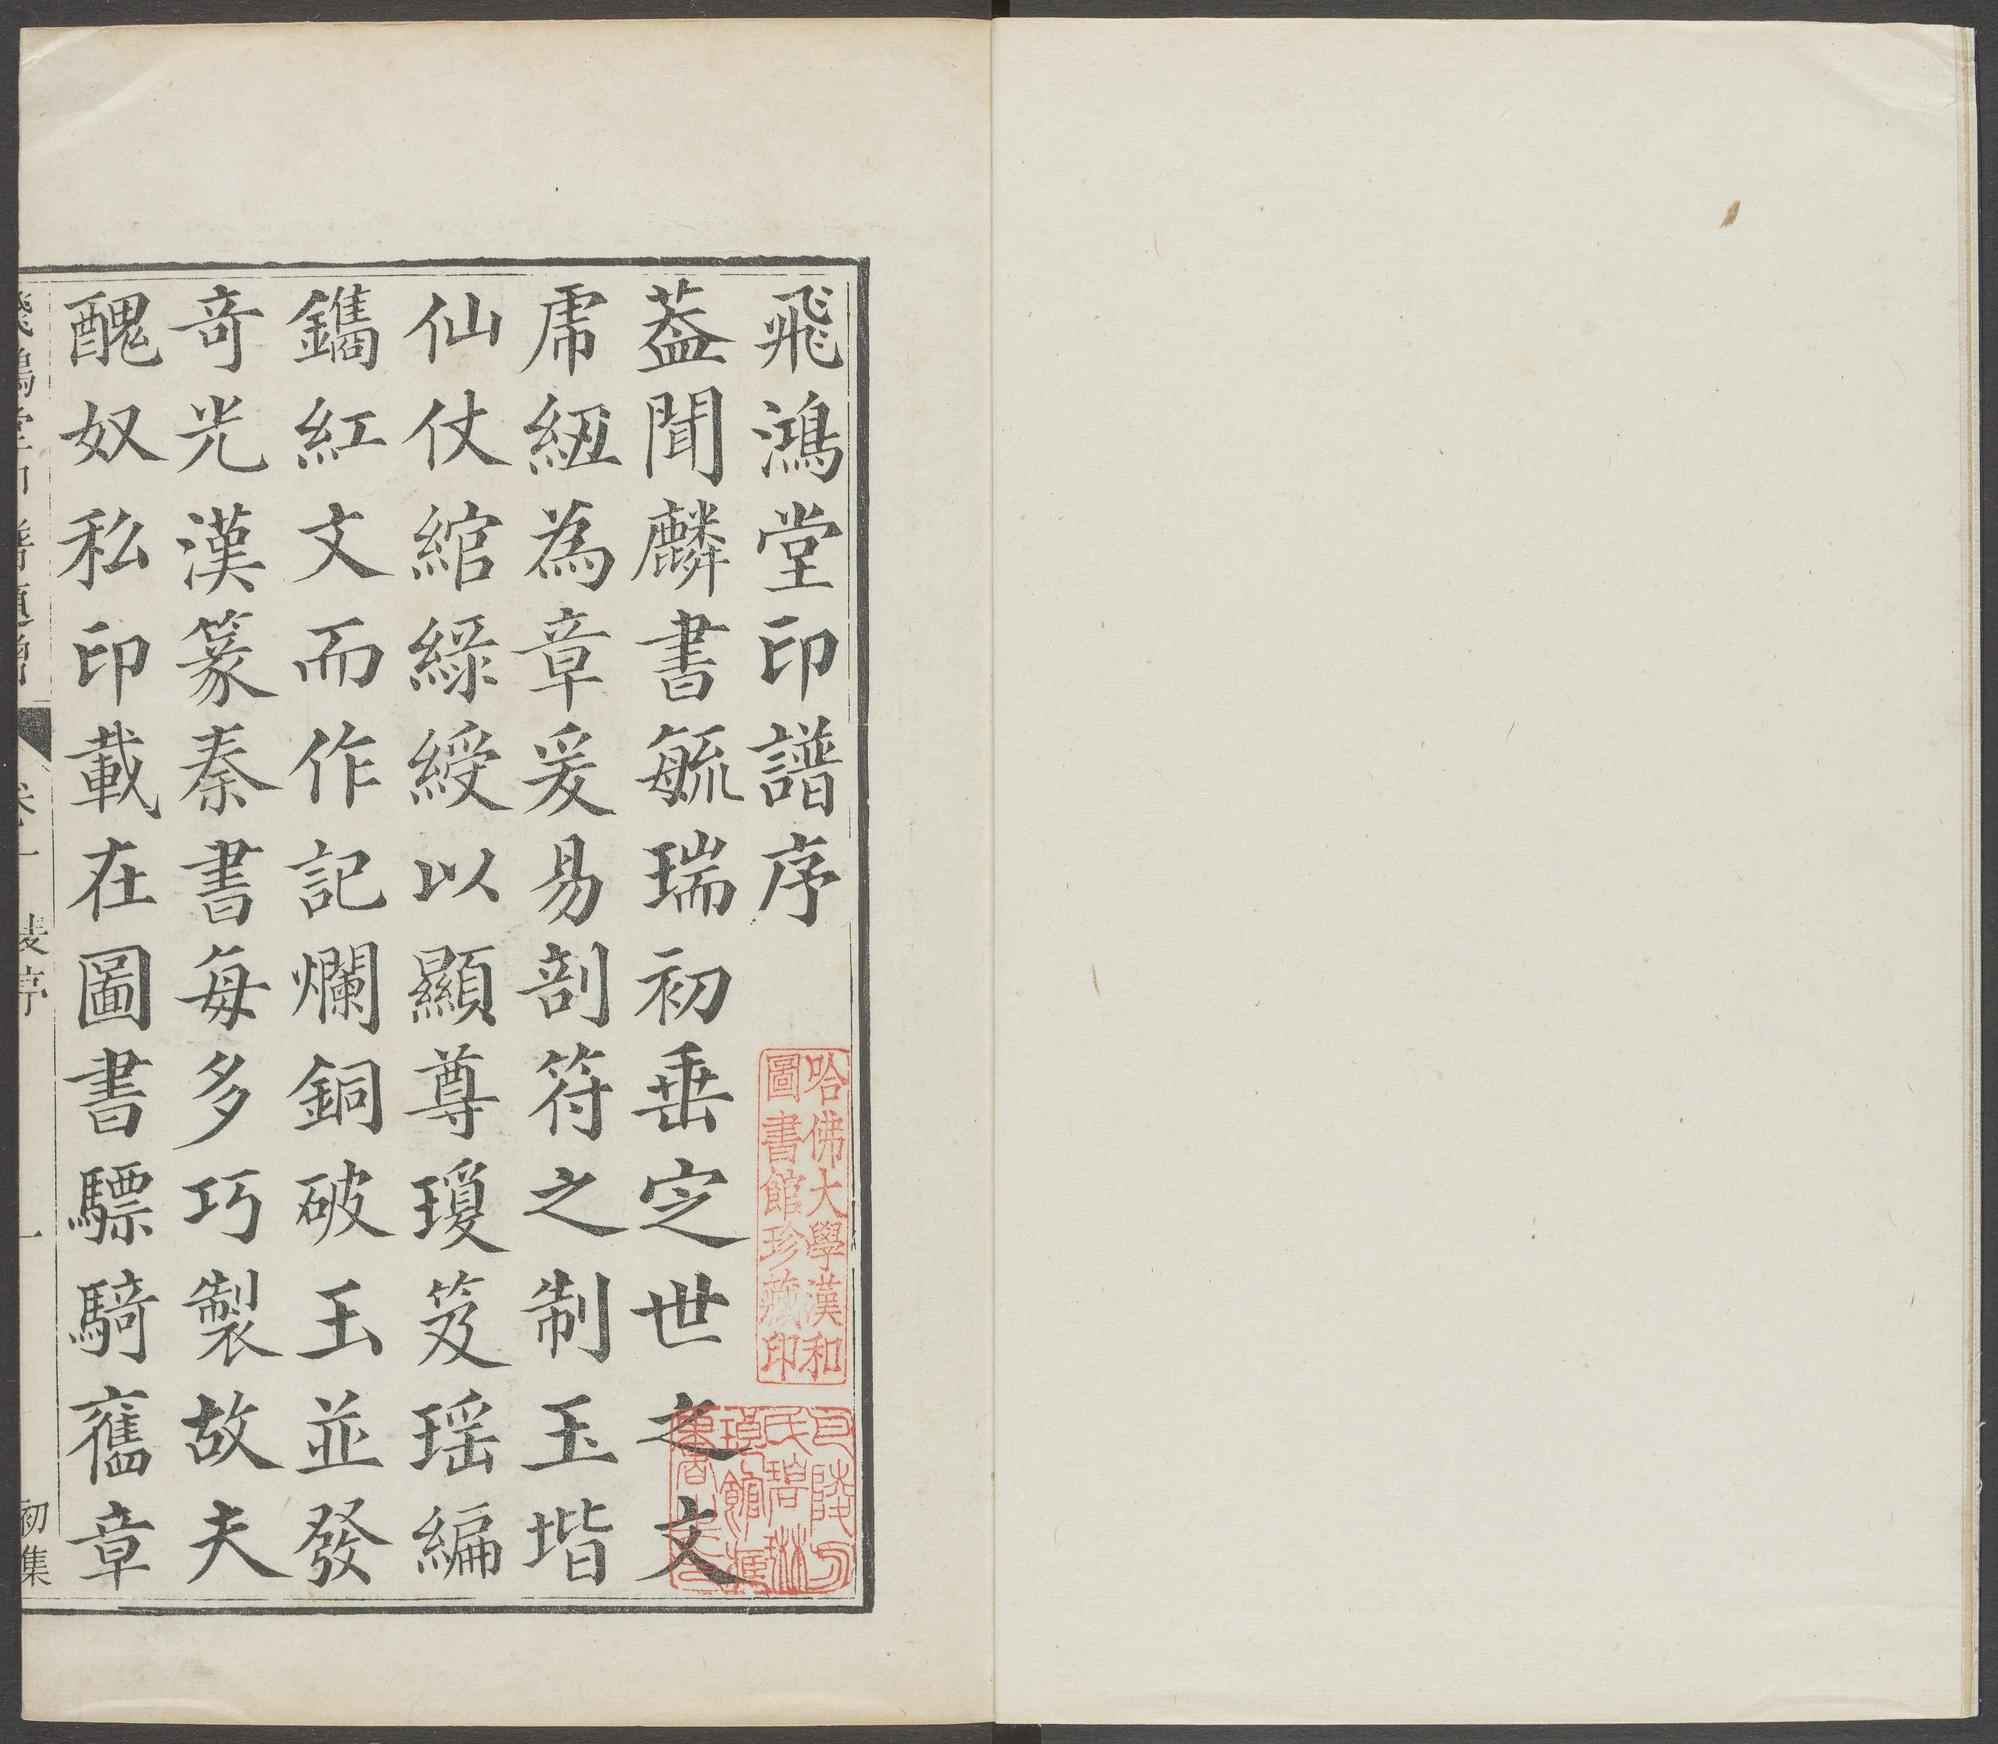 飛鴻堂印譜序
葢聞麟書毓瑞初垂㝎世之文
虎紐為章爰易剖符之制玉堦
仙仗綰綠綬以顯尊瓊笈瑶編
鐫紅文而作記爛銅破玉並發
奇光漢篆秦書每多巧製故夫
醜奴私印載在圖書驃騎舊章
哈佛大學漢和
圖書館珍藏印
初集